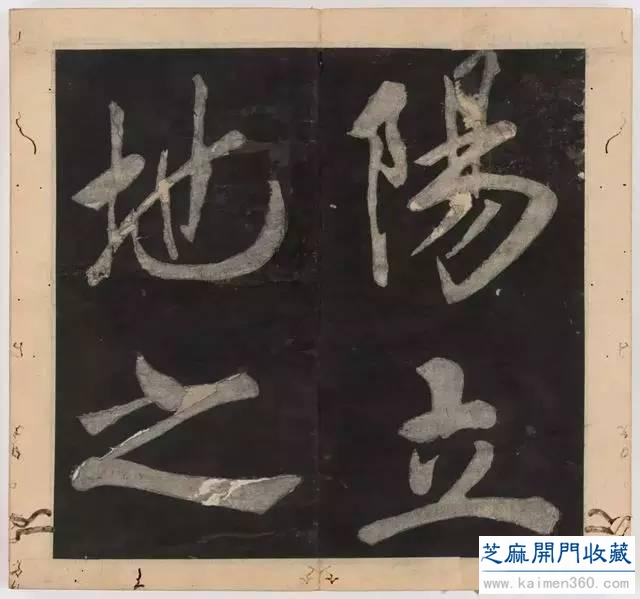 陽立
地之
芝麻開門收藏
www.kaimen360.com